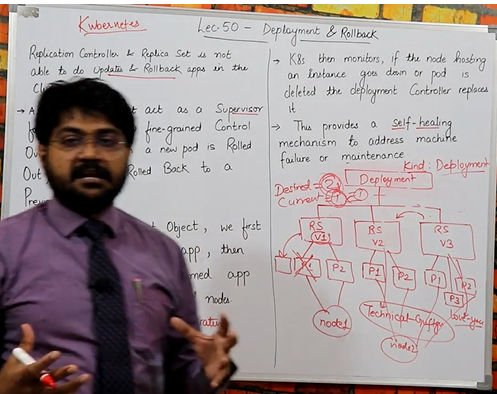 Kubernetes
Lec-50 - Deployment & Rollback
Replication Controller & Replica Set is not
able to do updates & Rollback apps in the
act as a Supervisor
fine-grained Control
a new pod is Rolled
Out
Rolled Back to a
Object, we first
app, then
app
nodes
→ K8s then monitors, if the node hosting
an instance goes down or pod is
deleted the deployment Controller replaces
it.
→ This provides a self-healing
mechanism to address machine
failure or maintenance
Kind: Deployment
Deployment
Desired = 2
Current = 1
RS
V1
RS
V2
RS
V3
P2
P1
P2
P1
P2
P3
node1
Technical-Guftgu
node2